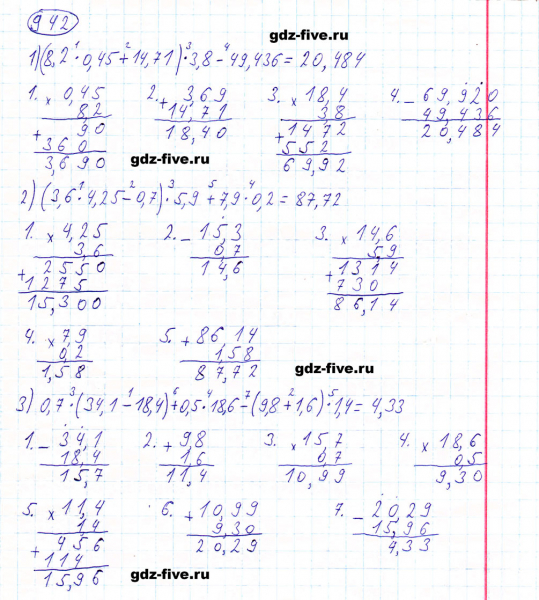 942
gdz-five.ru
1) (8,2 · 0,45 + 14,71) · 3,8 - 49,436 = 20,484
1. × 0,45
8,2
+ 90
360
3,690
2. + 3,69
14,71
18,40
gdz-five.ru
3. × 18,4
38
+ 1472
552
69,92
4. - 69,920
49,436
20,484
2) (3,6 · 4,25 - 0,7) · 5,9 + 7,9 · 0,2 = 87,72
1. × 4,25
3,6
+ 2550
1275
15,300
2. - 15,3
0,7
14,6
3. × 14,6
5,9
+ 1314
730
86,14
4. × 7,9
0,2
1,58
5. + 86,14
1,58
87,72
gdz-five.ru
3) 0,7 · (34,1 - 18,4) + 0,5 · 18,6 - (9,8 + 1,6) · 1,4 = 4,33
1. - 34,1
18,4
15,7
2. + 9,8
1,6
11,4
3. × 15,7
0,7
10,99
4. × 18,6
0,5
9,30
5. × 11,4
14
+ 456
114
15,96
6. + 10,99
9,30
20,29
7. - 20,29
15,96
4,33
gdz-five.ru